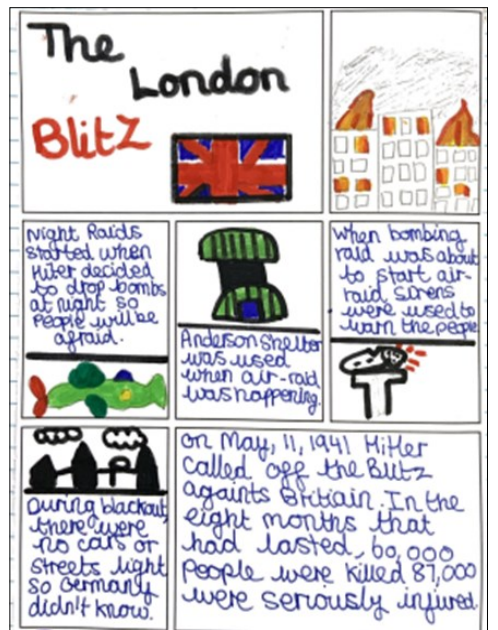 The
London
Blitz
Night Raids
started when
Hitler decided
to drop bombs
at night so
People will be
afraid.
Anderson Shelter
was used
when air-raid
was happening.
When bombing
raid was about
to start air-
raid sirens
were used to
warn the people
During blackout
there were
no cars or
streets light
so Germany
didn't know.
on May, 11, 1941 Hitler
called off the Blitz
againts Britiain. In the
eight months that
had lasted, 60,000
people were killed 87,000
were seriously injured.